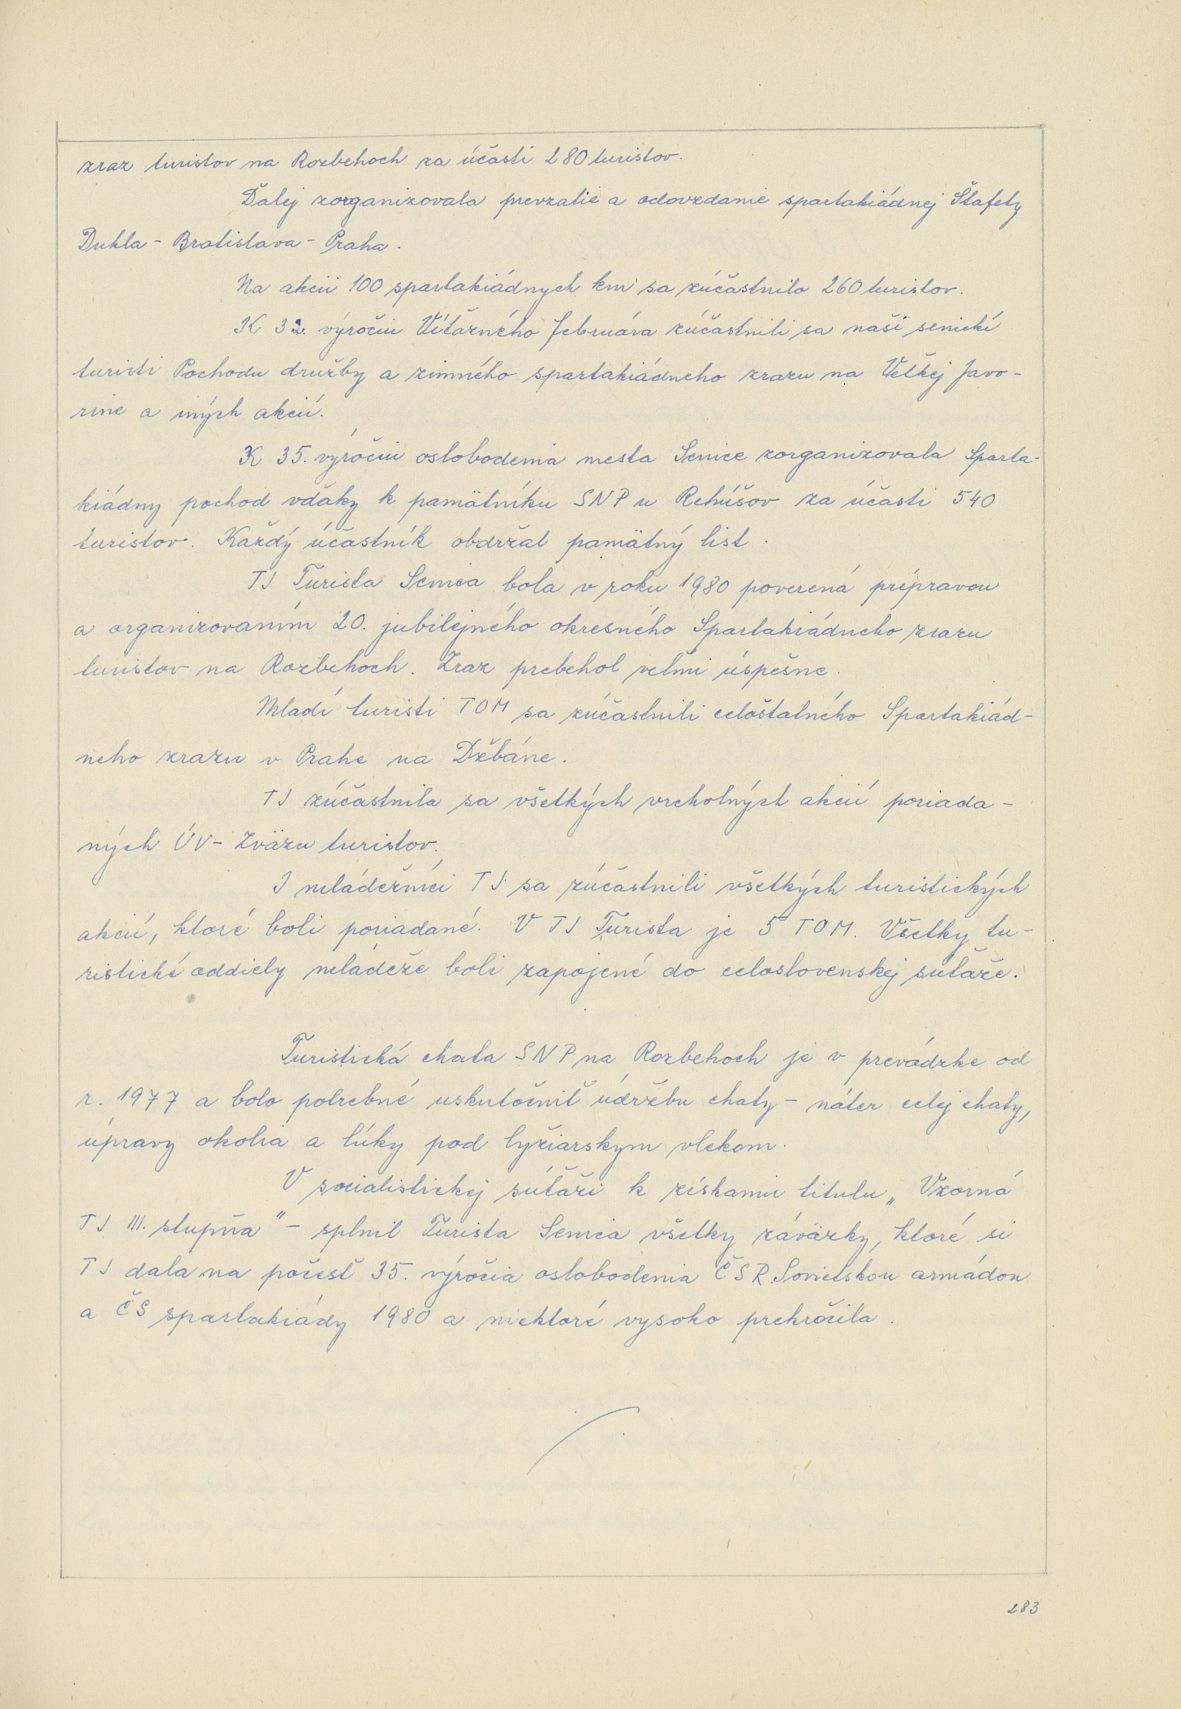 zraz turistov na Rozbehoch za účasti 280 turistov.
Ďalej zorganizovala prevzatie a odovzdanie spartakiádnej Štafety
Dukla - Bratislava - Praha.
Na akcii 100 spartakiádnych km sa zúčastnilo 260 turistov.
K 32. výročiu Víťazného februára zúčastnili sa naši senickí
turisti Pochodu družby a zimného spartakiádneho zrazu na Veľkej Javo-
rine a iných akcií.
K 35. výročiu oslobodenia mesta Senice zorganizovala Sparta-
kiádny pochod vďaky k pamätníku SNP u Rehúšov za účasti 540
turistov. Každý účastník obdržal pamätný list.
TJ Turista Senica bola v roku 1980 poverená prípravou
a organizovaním 20. jubilejného okresného Spartakiádneho zrazu
turistov na Rozbehoch. Zraz prebehol veľmi úspešne.
Mladí turisti TOM sa zúčastnili celoštátného Spartakiád-
neho zrazu v Prahe na Džbáne.
TJ zúčastnila sa všetkých vrcholných akcií poriada-
ných ÚV - Zväzu turistov.
I mládežníci TJ sa zúčastnili všetkých turistických
akcií, ktoré boli poriadané. V TJ Turista je 5 TOM. Všetky tu-
ristické oddiely mládeže boli zapojené do celoslovenskej súťaže.
Turistická chata SNP na Rozbehoch je v prevádzke od
r. 1977 a bolo potrebné uskutočniť údržbu chaty - náter celej chaty,
úpravy okolia a lúky pod lyžiarskym vlekom.
V socialistickej súťaži k získaniu titulu „Vzorná
TJ III. stupňa" - splnil Turista Senica všetky záväzky, ktoré si
TJ dala na počesť 35. výročia oslobodenia ČSR Sovietskou armádou
a ČS spartakiády 1980 a niektoré vysoko prekročila.
283